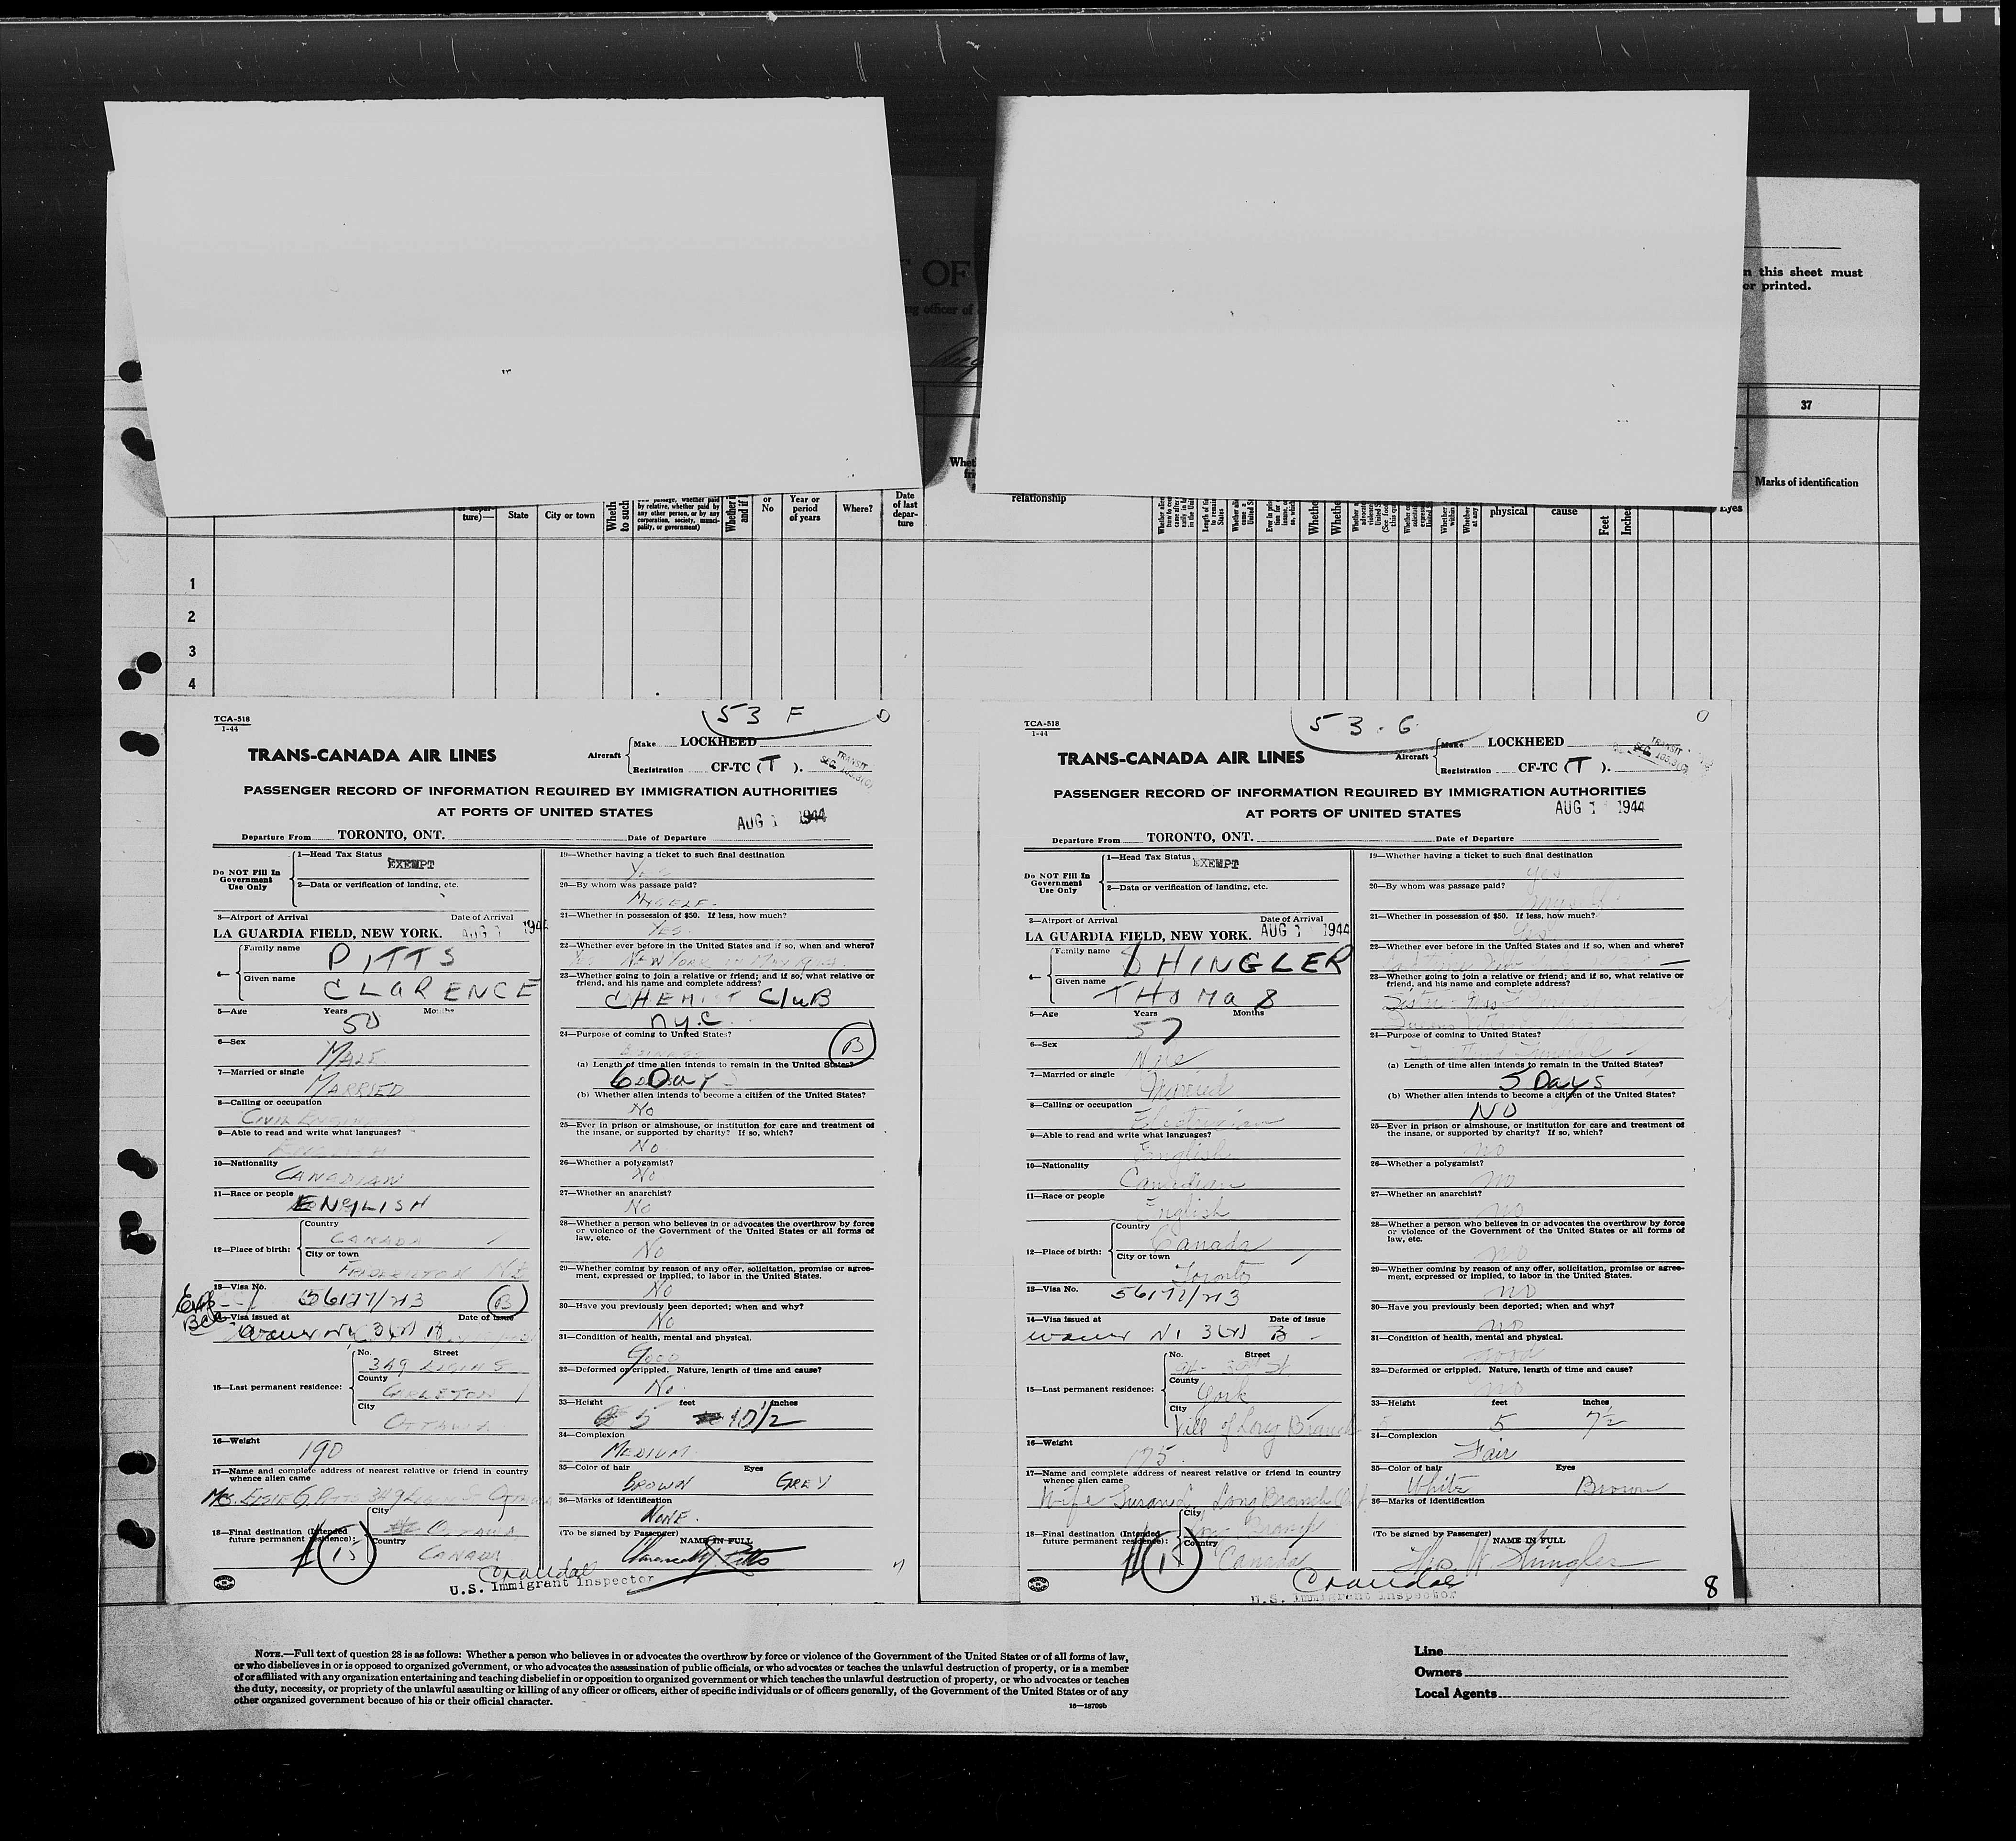 T OF
n this sheet must
or printed.
ng officer of
37
Marks of identification
relationship
State
City or town
Wheth
to such
by relative, whether paid by
any other person, or by any
corporation, society, munici-
pality, or government)
or
No
Year or
period
of years
Where?
Date
of last
depar-
ture
physical
cause
Feet
Inches
Eyes
1
2
3
4
53 F
TCA-518
1-44
TRANS-CANADA AIR LINES
Aircraft
Make LOCKHEED
Registration CF-TC (T).
TRANSIT
SEC. 105.3(C)
PASSENGER RECORD OF INFORMATION REQUIRED BY IMMIGRATION AUTHORITIES
AT PORTS OF UNITED STATES
AUG 1 1944
Departure From TORONTO, ONT. Date of Departure
Do NOT Fill In
Government
Use Only
1—Head Tax Status
EXEMPT
2—Data or verification of landing, etc.
3—Airport of Arrival Date of Arrival
LA GUARDIA FIELD, NEW YORK. AUG 1 1944
4—
Family name PITTS
Given name CLARENCE
5—Age Years Months
50
6—Sex
MALE
7—Married or single
MARRIED
8—Calling or occupation
CIVIL
9—Able to read and write what languages?
ENGLISH
10—Nationality
CANADIAN
11—Race or people
ENGLISH
12—Place of birth:
Country
CANADA
City or town
FREDERICTON NB
13—Visa No.
56177/213 B
Visa issued at Date of issue
3(2) B
15—Last permanent residence:
No. Street
349
County
CARLETON
City
OTTAWA
16—Weight
190
17—Name and complete address of nearest relative or friend in country
whence alien came
MRS. ELSIE G. PITTS 349 OTTAWA
18—Final destination (Intended
future permanent residence):
City
OTTAWA
Country
CANADA
15
19—Whether having a ticket to such final destination
Yes
20—By whom was passage paid?
MYSELF.
21—Whether in possession of $50. If less, how much?
YES.
22—Whether ever before in the United States and if so, when and where?
NEW YORK
23—Whether going to join a relative or friend; and if so, what relative or
friend, and his name and complete address?
CHEMIST CLUB
N.Y.C.
24—Purpose of coming to United States?
B
(a) Length of time alien intends to remain in the United States?
6 Days
(b) Whether alien intends to become a citizen of the United States?
No
25—Ever in prison or almshouse, or institution for care and treatment of
the insane, or supported by charity? If so, which?
No
26—Whether a polygamist?
No
27—Whether an anarchist?
No
28—Whether a person who believes in or advocates the overthrow by force
or violence of the Government of the United States or all forms of
law, etc.
No
29—Whether coming by reason of any offer, solicitation, promise or agree-
ment, expressed or implied, to labor in the United States.
No
30—Have you previously been deported; when and why?
No
31—Condition of health, mental and physical.
Good
32—Deformed or crippled. Nature, length of time and cause?
No.
33—Height feet inches
5 10 1/2
34—Complexion
MEDIUM
35—Color of hair Eyes
BROWN GREY
36—Marks of identification
NONE.
(To be signed by Passenger) NAME IN FULL
Clarence Pitts
Crandal
U.S. Immigrant Inspector
7
53-G
TCA-518
1-44
TRANS-CANADA AIR LINES
Aircraft
Make LOCKHEED
Registration CF-TC (T).
TRANSIT
SEC. 105.3(C)
PASSENGER RECORD OF INFORMATION REQUIRED BY IMMIGRATION AUTHORITIES
AT PORTS OF UNITED STATES
AUG 1 1944
Departure From TORONTO, ONT. Date of Departure
Do NOT Fill In
Government
Use Only
1—Head Tax Status
EXEMPT
2—Data or verification of landing, etc.
3—Airport of Arrival Date of Arrival
LA GUARDIA FIELD, NEW YORK. AUG 1 1944
4—
Family name SHINGLER
Given name THOMAS
5—Age Years Months
57
6—Sex
Male
7—Married or single
Married
8—Calling or occupation
Electrician
9—Able to read and write what languages?
English
10—Nationality
Canadian
11—Race or people
English
12—Place of birth:
Country
Canada
City or town
Toronto
13—Visa No.
56177/213
14—Visa issued at Date of issue
3(2) B
15—Last permanent residence:
No. Street
County
York
City
Vill of Long Branch
16—Weight
175
17—Name and complete address of nearest relative or friend in country
whence alien came
Wife Long Branch Ont
18—Final destination (Intended
future permanent residence):
City
Long Branch
Country
Canada
19—Whether having a ticket to such final destination
yes
20—By whom was passage paid?
myself
21—Whether in possession of $50. If less, how much?
Yes
22—Whether ever before in the United States and if so, when and where?
23—Whether going to join a relative or friend; and if so, what relative or
friend, and his name and complete address?
Sister
24—Purpose of coming to United States?
Funeral
(a) Length of time alien intends to remain in the United States?
5 Days
(b) Whether alien intends to become a citizen of the United States?
NO
25—Ever in prison or almshouse, or institution for care and treatment of
the insane, or supported by charity? If so, which?
no
26—Whether a polygamist?
no
27—Whether an anarchist?
no
28—Whether a person who believes in or advocates the overthrow by force
or violence of the Government of the United States or all forms of
law, etc.
no
29—Whether coming by reason of any offer, solicitation, promise or agree-
ment, expressed or implied, to labor in the United States.
no
30—Have you previously been deported; when and why?
no
31—Condition of health, mental and physical.
good
32—Deformed or crippled. Nature, length of time and cause?
no
33—Height feet inches
5 7½
34—Complexion
Fair
35—Color of hair Eyes
White Brown
36—Marks of identification
(To be signed by Passenger) NAME IN FULL
Thos W. Shingler
Crandal
U.S. Immigrant Inspector
8
NOTE.—Full text of question 28 is as follows: Whether a person who believes in or advocates the overthrow by force or violence of the Government of the United States or of all forms of law,
or who disbelieves in or is opposed to organized government, or who advocates the assassination of public officials, or who advocates or teaches the unlawful destruction of property, or is a member
of or affiliated with any organization entertaining and teaching disbelief in or opposition to organized government or which teaches the unlawful destruction of property, or who advocates or teaches
the duty, necessity, or propriety of the unlawful assaulting or killing of any officer or officers, either of specific individuals or of officers generally, of the Government of the United States or of any
other organized government because of his or their official character.
16—18709b
Line
Owners
Local Agents